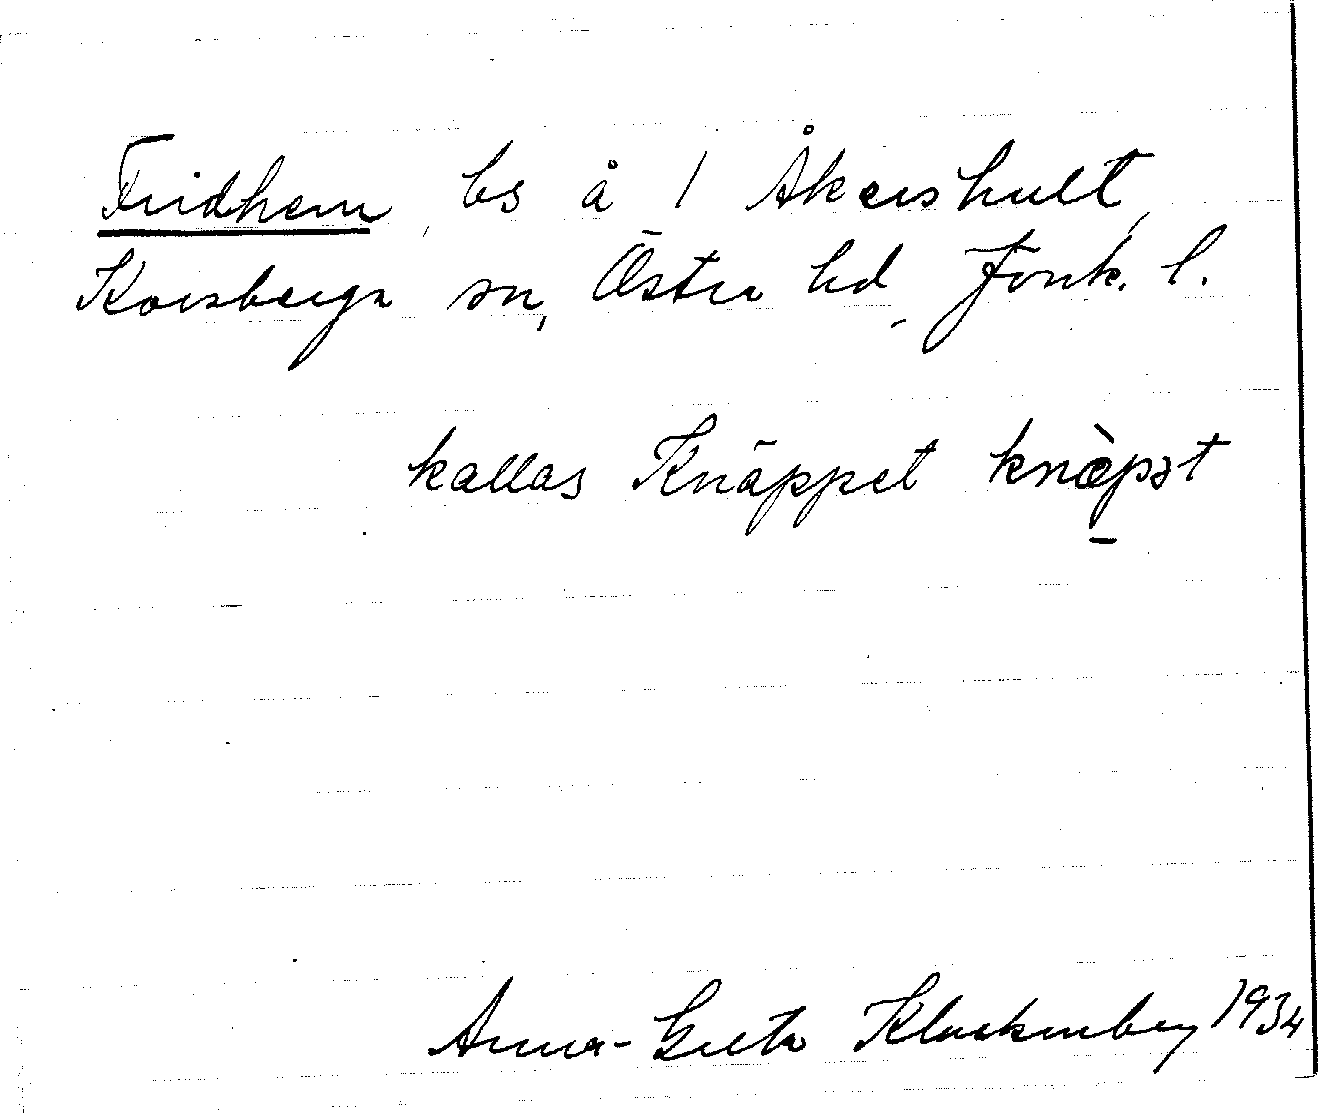 Fridhem, ls å 1 Åkershult,
Korsberga sn, Östra hd, Jönk. l.
kallas Knäppet knæ̀pət
Anna-Greta Klockenberg 1934